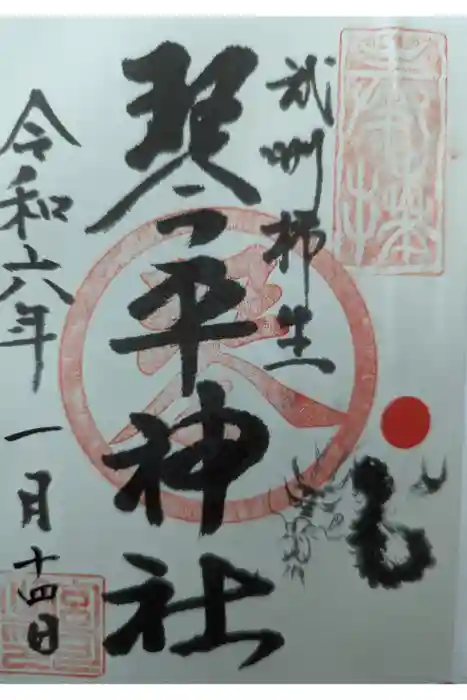 武州柿生
琴平神社
令和六年
一月十四日